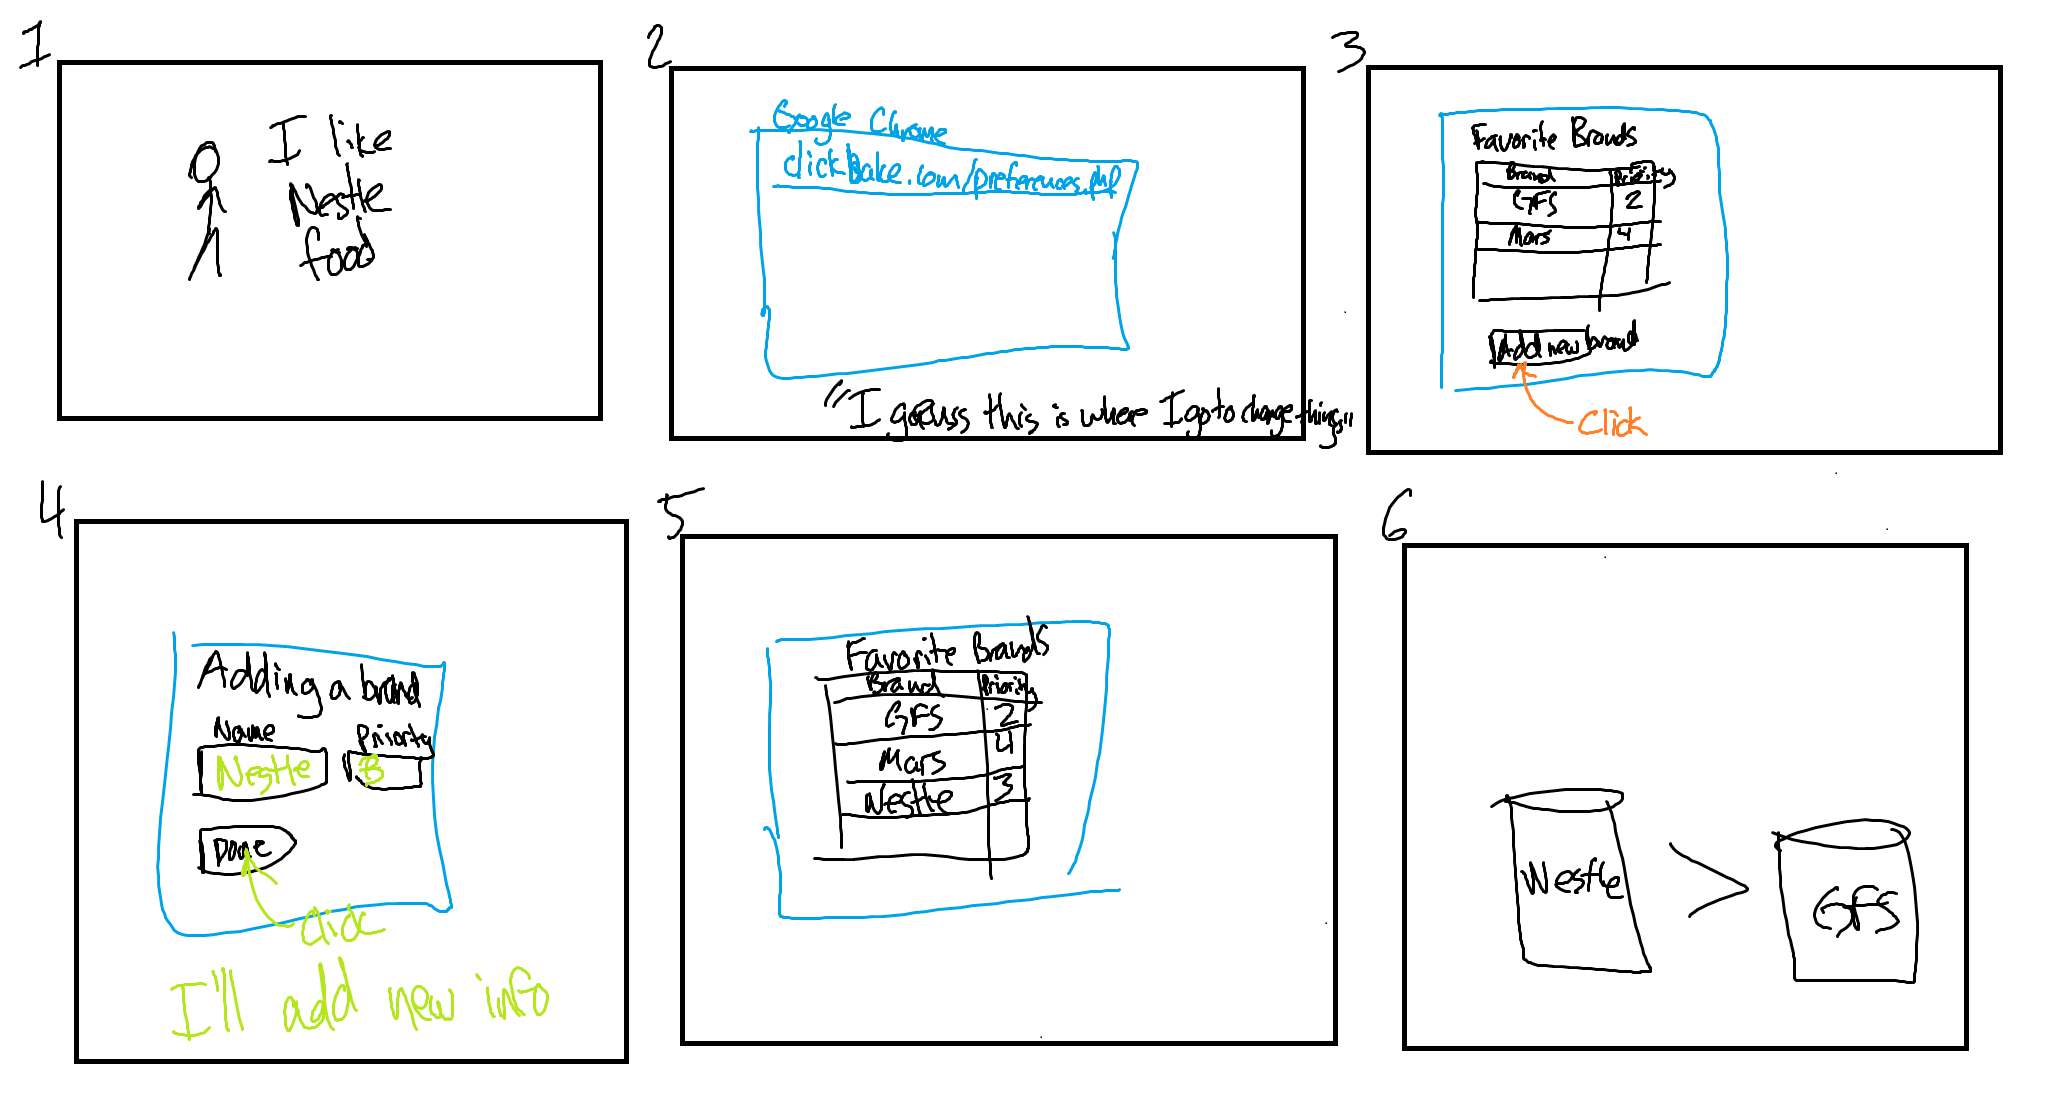 1
I like
Nestle
food
2
Google Chrome
clickbake.com/preferences.php
"I guess this is where I go to change things"
3
Favorite Brands
Brand Priority
GFS 2
Mars 4
Add new brand
Click
4
Adding a brand
Name Priority
Nestle 3
Done
Click
I'll add new info
5
Favorite Brands
Brand Priority
GFS 2
Mars 4
Nestle 3
6
Nestle > GFS